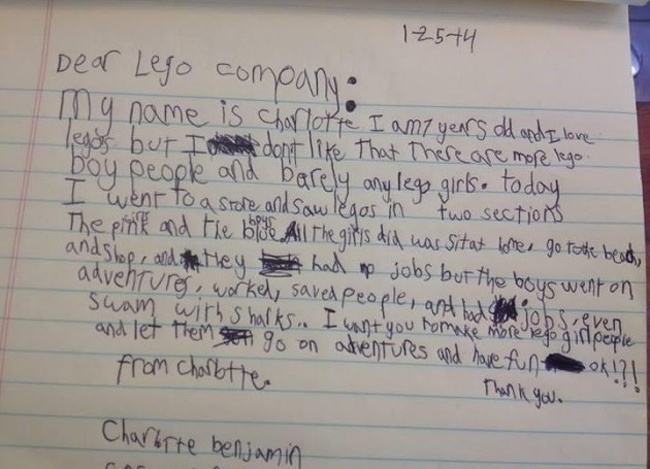 1-25-14
Dear Lego company:
My name is Charlotte I am 7 years old and I love
legos but I dont like that there are more lego
boy people and barely any lego girls. today
I went to a store and saw legos in two sections
The pink girls and the blue boys. All the girls did was sit at home, go to the beach,
and shop, and they had no jobs but the boys went on
adventures, worked, saved people, and had jobs, even
swam with sharks.. I want you to make more lego girl people
and let them go on adventures and have fun ok!?!
from charlotte. Thank you.
Charlotte benjamin